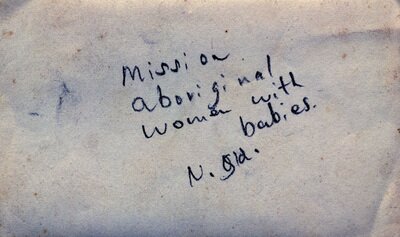 Mission
aboriginal
women with
babies.
N. Qld.